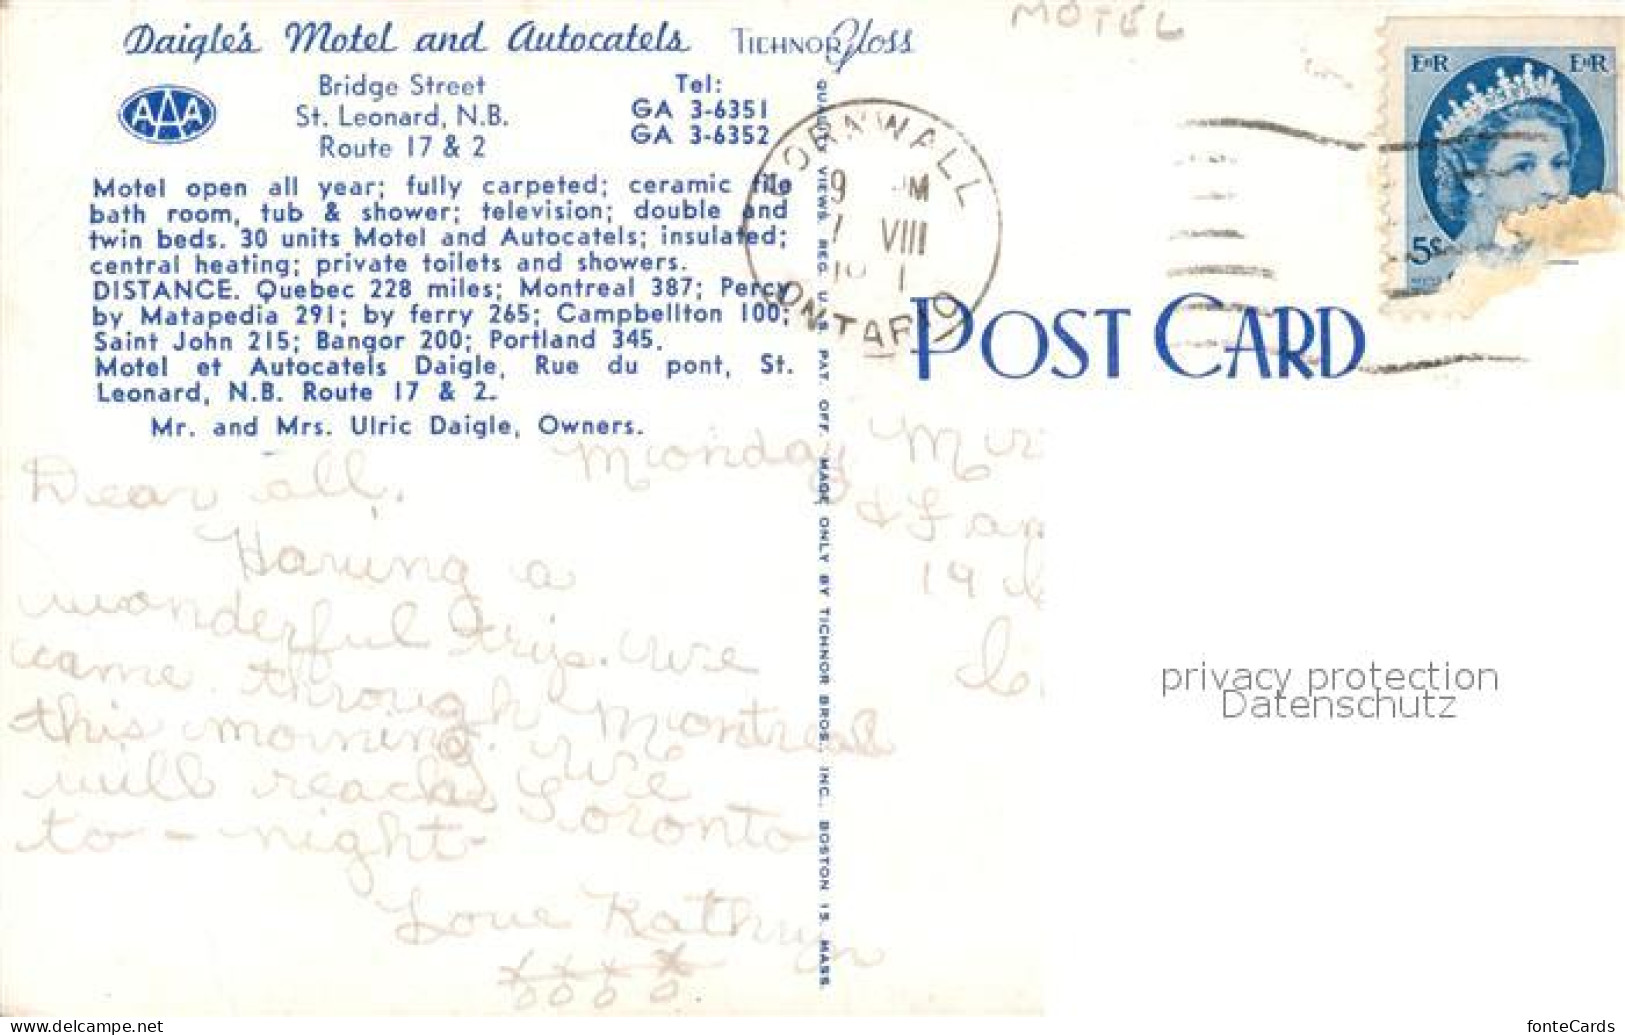 MOTEL
Daigle's Motel and Autocatels TICHNOR Gloss
AAA
Bridge Street
St. Leonard, N.B.
Route 17 & 2
Tel:
GA 3-6351
GA 3-6352
Motel open all year; fully carpeted; ceramic tile
bath room, tub & shower; television; double and
twin beds. 30 units Motel and Autocatels; insulated;
central heating; private toilets and showers.
DISTANCE. Quebec 228 miles; Montreal 387; Percy
by Matapedia 291; by ferry 265; Campbellton 100;
Saint John 215; Bangor 200; Portland 345.
Motel et Autocatels Daigle, Rue du pont, St.
Leonard, N.B. Route 17 & 2.
Mr. and Mrs. Ulric Daigle, Owners.
Monday
Dear all,
Having a
wonderful trip. We
came through Montreal
this morning. We
will reach Toronto
to-night
Love Kathryn
xxxx
oooo.
QUALITY VIEWS REG. U.S. PAT. OFF. MADE ONLY BY TICHNOR BROS., INC., BOSTON 15, MASS.
CORNWALL
9 PM
VIII
ONTARIO
EIIR EIIR
5¢
POST CARD
19
privacy protection
Datenschutz
www.delcampe.net
fonteCards